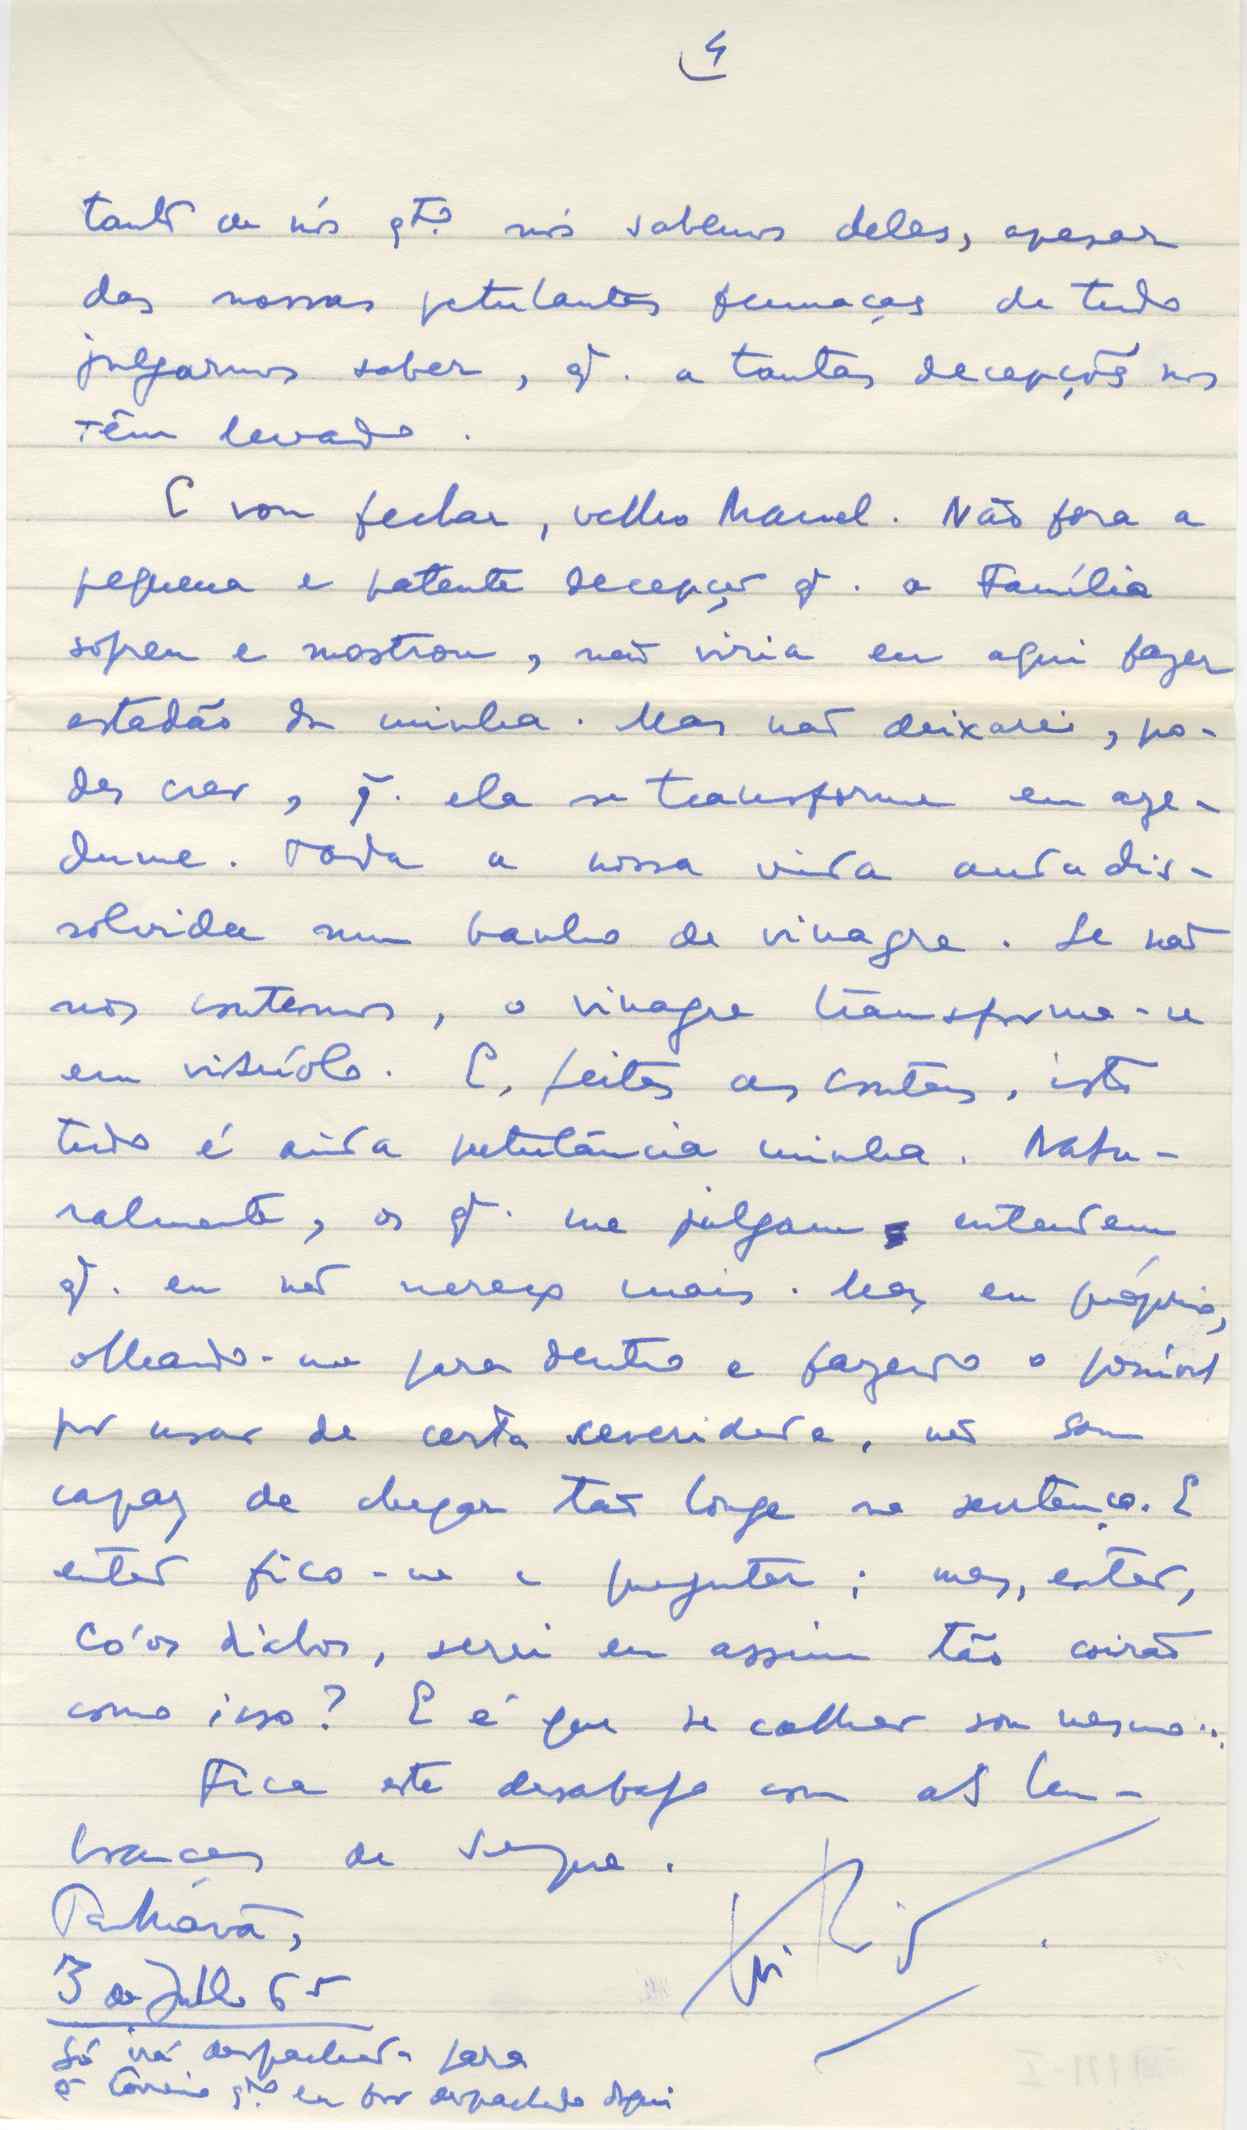 4
tanto de nós qto nós sabemos deles, apesar
das nossas petulantes fumaças de tudo
julgarmos saber, q. a tantas decepções nos
têm levado.
E vou fechar, velho Manuel. Não fora a
pequena e patente decepção q. a Família
sofreu e mostrou, não viria eu aqui fazer
estadão da minha. Mas não deixarei, po-
des crer, q. ela se transforme em aze-
dume. Toda a nossa vida anda dis-
solvida num banho de vinagre. Se não
nos contemos, o vinagre transforma-se
em vitríolo. E, feitas as contas, isto
tudo é ainda petulância minha. Natu-
ralmente, os q. me julgam entendem
q. eu não mereço mais. Mas eu próprio,
olhando-me para dentro e fazendo o possível
por usar de certa severidade, não sou
capaz de chegar tão longe na sentença. E
então fico-me a preguntar: mas, então,
co'os diabos, serei eu assim tão coirão
como isso? E é que se calhar sou mesmo...
Fica este desabafo com as lem-
branças de sempre.
Palhavã,
3 de Julho 65
Só irá despachada para
o Correio qdo eu for despachado daqui